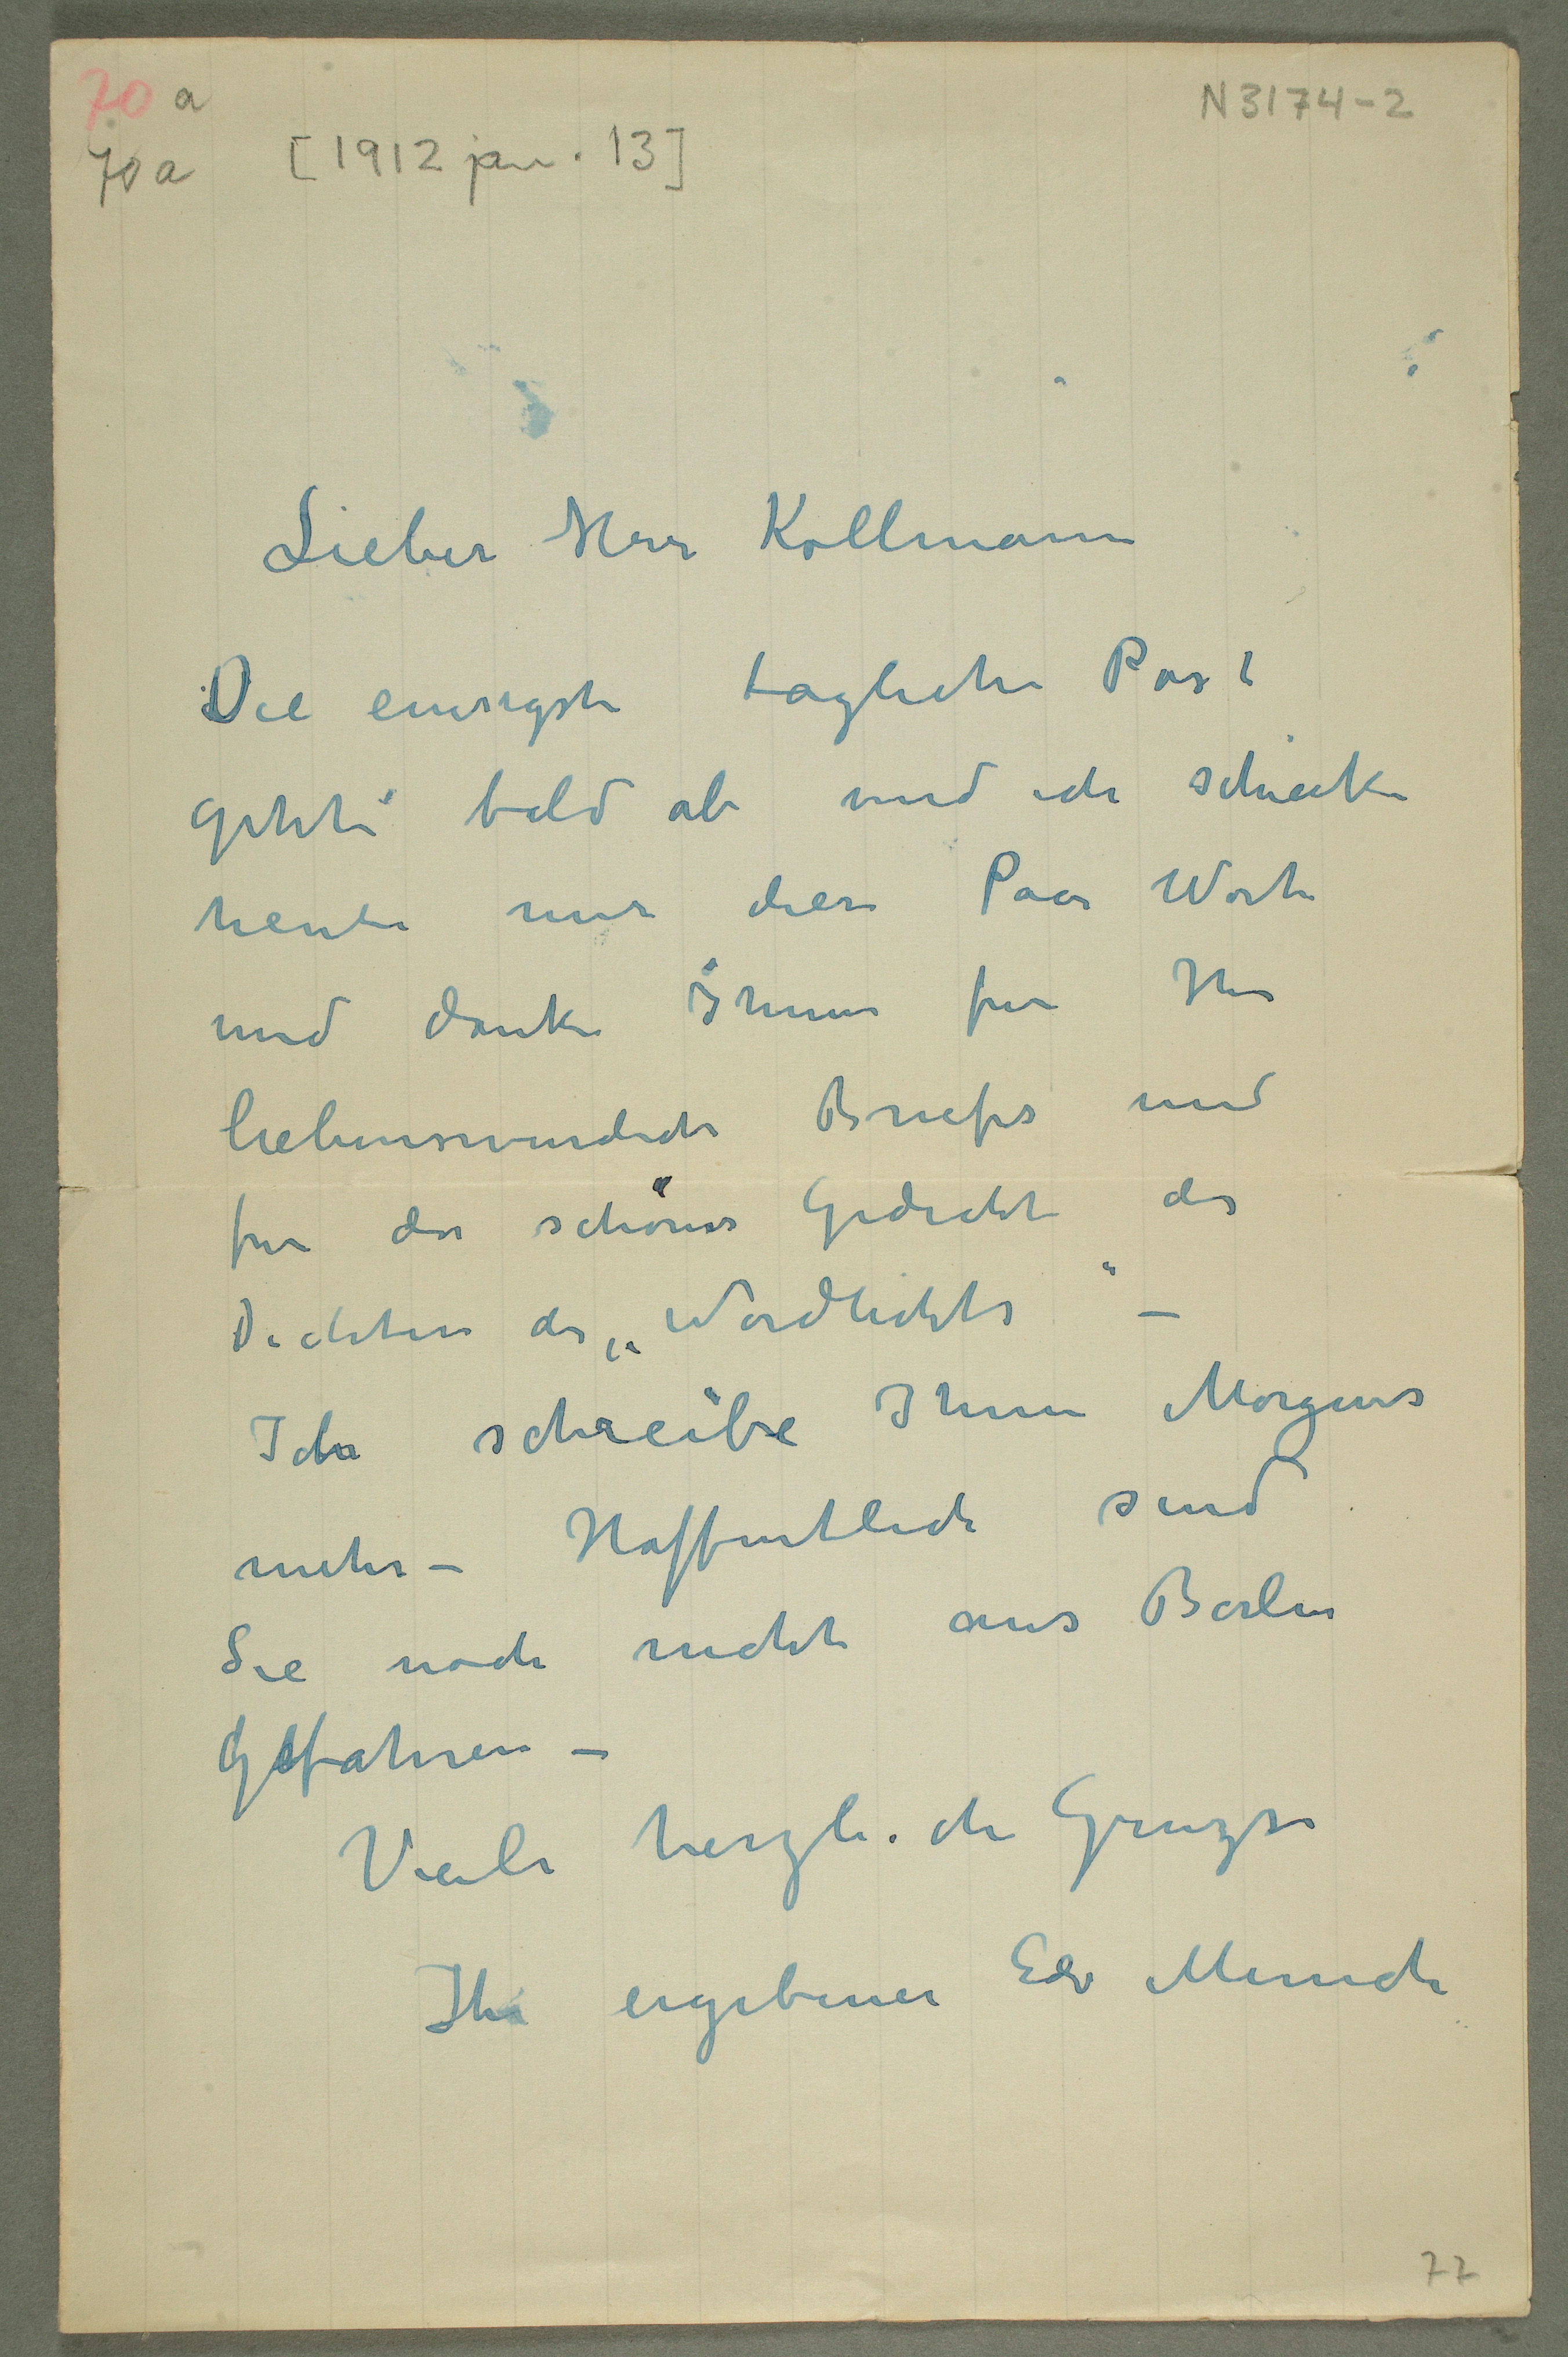 70 a
N 3174-2
70 a [1912 jan. 13]
Lieber Herr Kollmann
Die einsigste tagliche Post
gehht bald ab und ich schicke
heute nur diese Paar Worte
und danke Ihnen fur Ihr
liebenswurdiche Briefes und
fur das schönes Gedicht des
Dichters des „Nordlichts“ –
Ich schreibe Ihnen Morgens
mehr – Hoffentlich sind
Sie noch nicht aus Berlin
Gefahren –
Viele herzliche Gruzse
Ihr ergebener Edv Munch
77